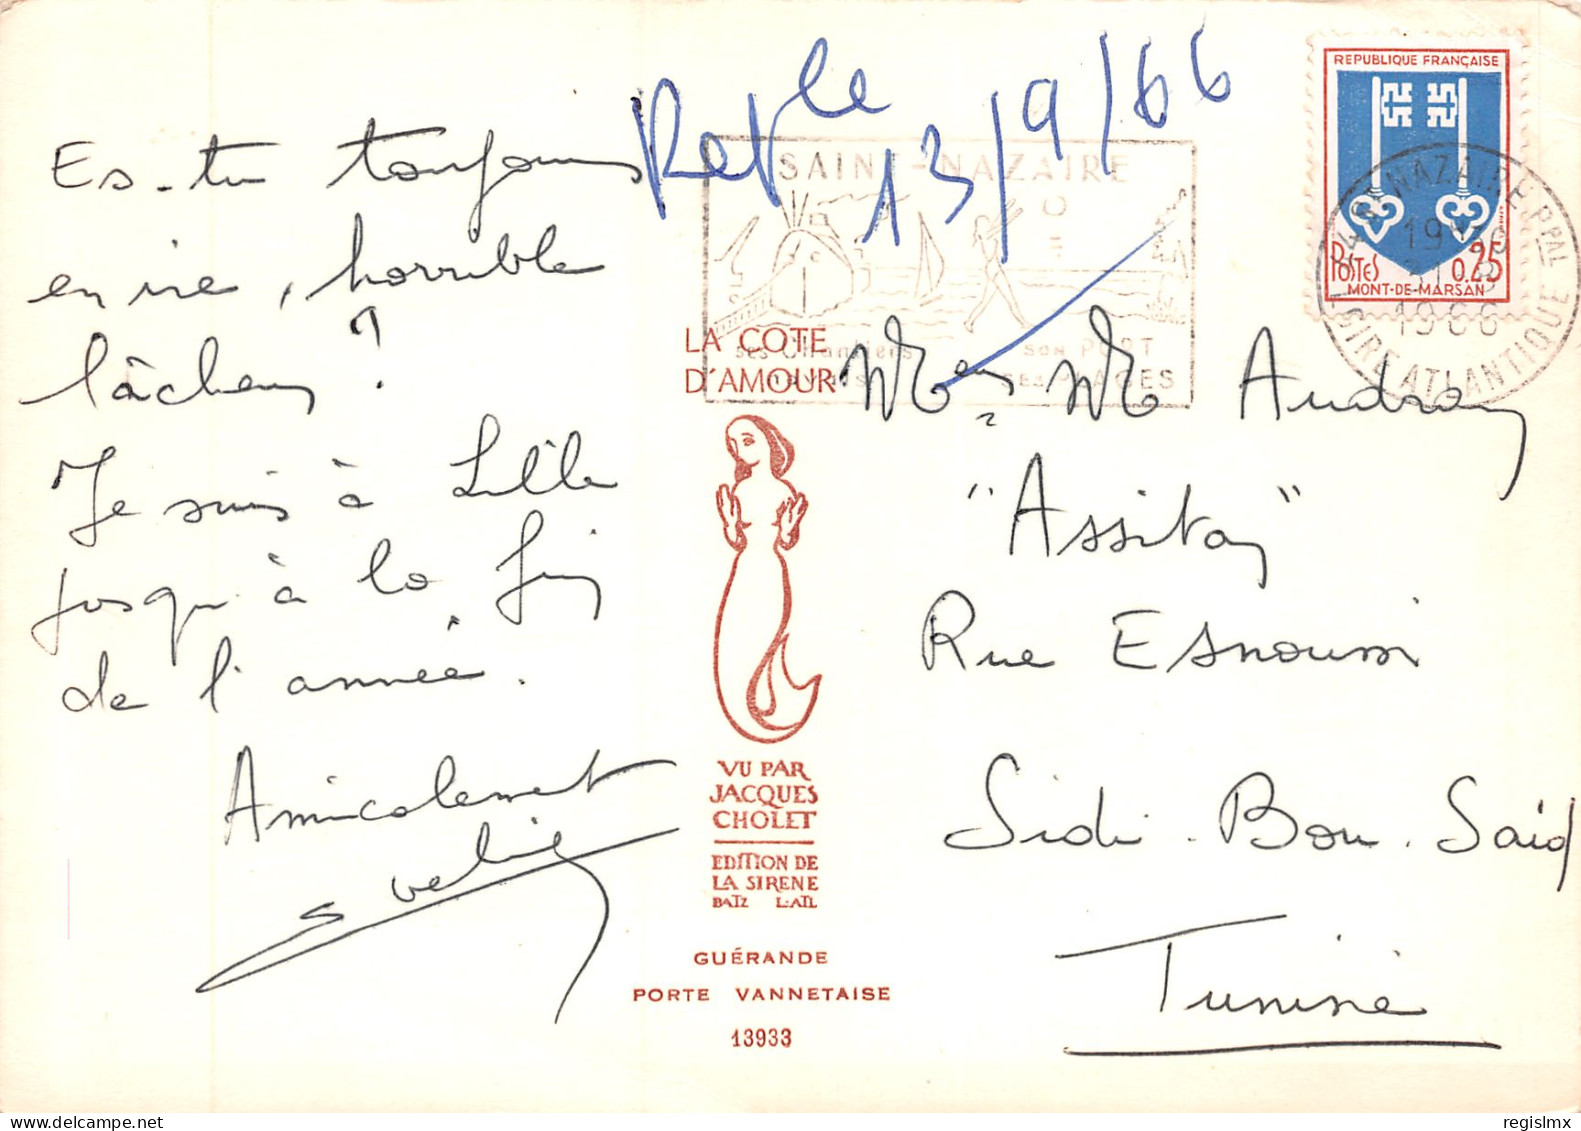 Es-tu toujours
en vie, horrible
lâcheur ?
Je suis à Lille
jusqu'à la fin
de l'année.
Amicalement
Rep le
13/9/66
SAINT-NAZAIRE
SON PORT
SES PLAGES
LA COTE
D'AMOUR
VU PAR
JACQUES
CHOLET
EDITION DE
LA SIRENE
BATZ L-ATL
GUÉRANDE
PORTE VANNETAISE
13933
REPUBLIQUE FRANÇAISE
POSTES 0,25
MONT-DE-MARSAN
NAZAIRE PPAL
1966
LOIRE ATLANTIQUE
Audray
"Assitay"
Rue Esnoussi
Sidi-Bou-Said
Tunisie
regislmx